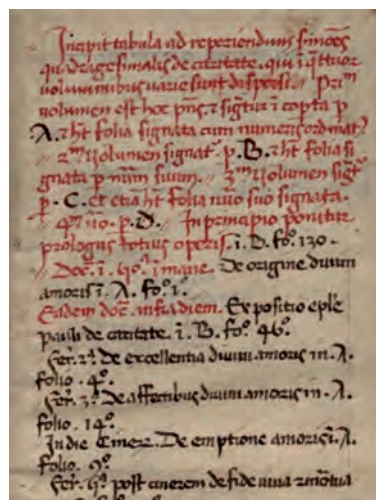 Incipit tabula ad reperiendum s̄mōes
quadragesimalis de caritate. qui ī q̄ttuor
voluminibus varie sunt dispositi. Prim
volumen est hoc pn̄s. ⁊ sigt̄ur ī copta p
A. ⁊ ht̄ folia signata cum numeris ordinat̄.
2m volumen signat̄. p. B. ⁊ ht̄ folia si
gnata p nūm suum. 3m volumen sigt̄
p. C. et etia ht̄ folia nūo suo signata.
4m v̄o. p. D. In principio ponitur
prologus totius operis. ī. D. fo. 130.
Doc. ī. 40. ī mane. De origine divini
amoris ī. A. fo. 1.
Eadem doc. infra diem. Expositio eple
pauli de caritate. ī. B. fo. 46.
Fer. 2. De excellentia divini amoris in. A.
folio. 4.
Fer. 3. De affectibus divini amoris in. A.
folio. 14.
In die Cinerz. De emptione amoris ī. A.
folio. 9.
Fer. 4. post cinerem de fide viva ⁊ mortua